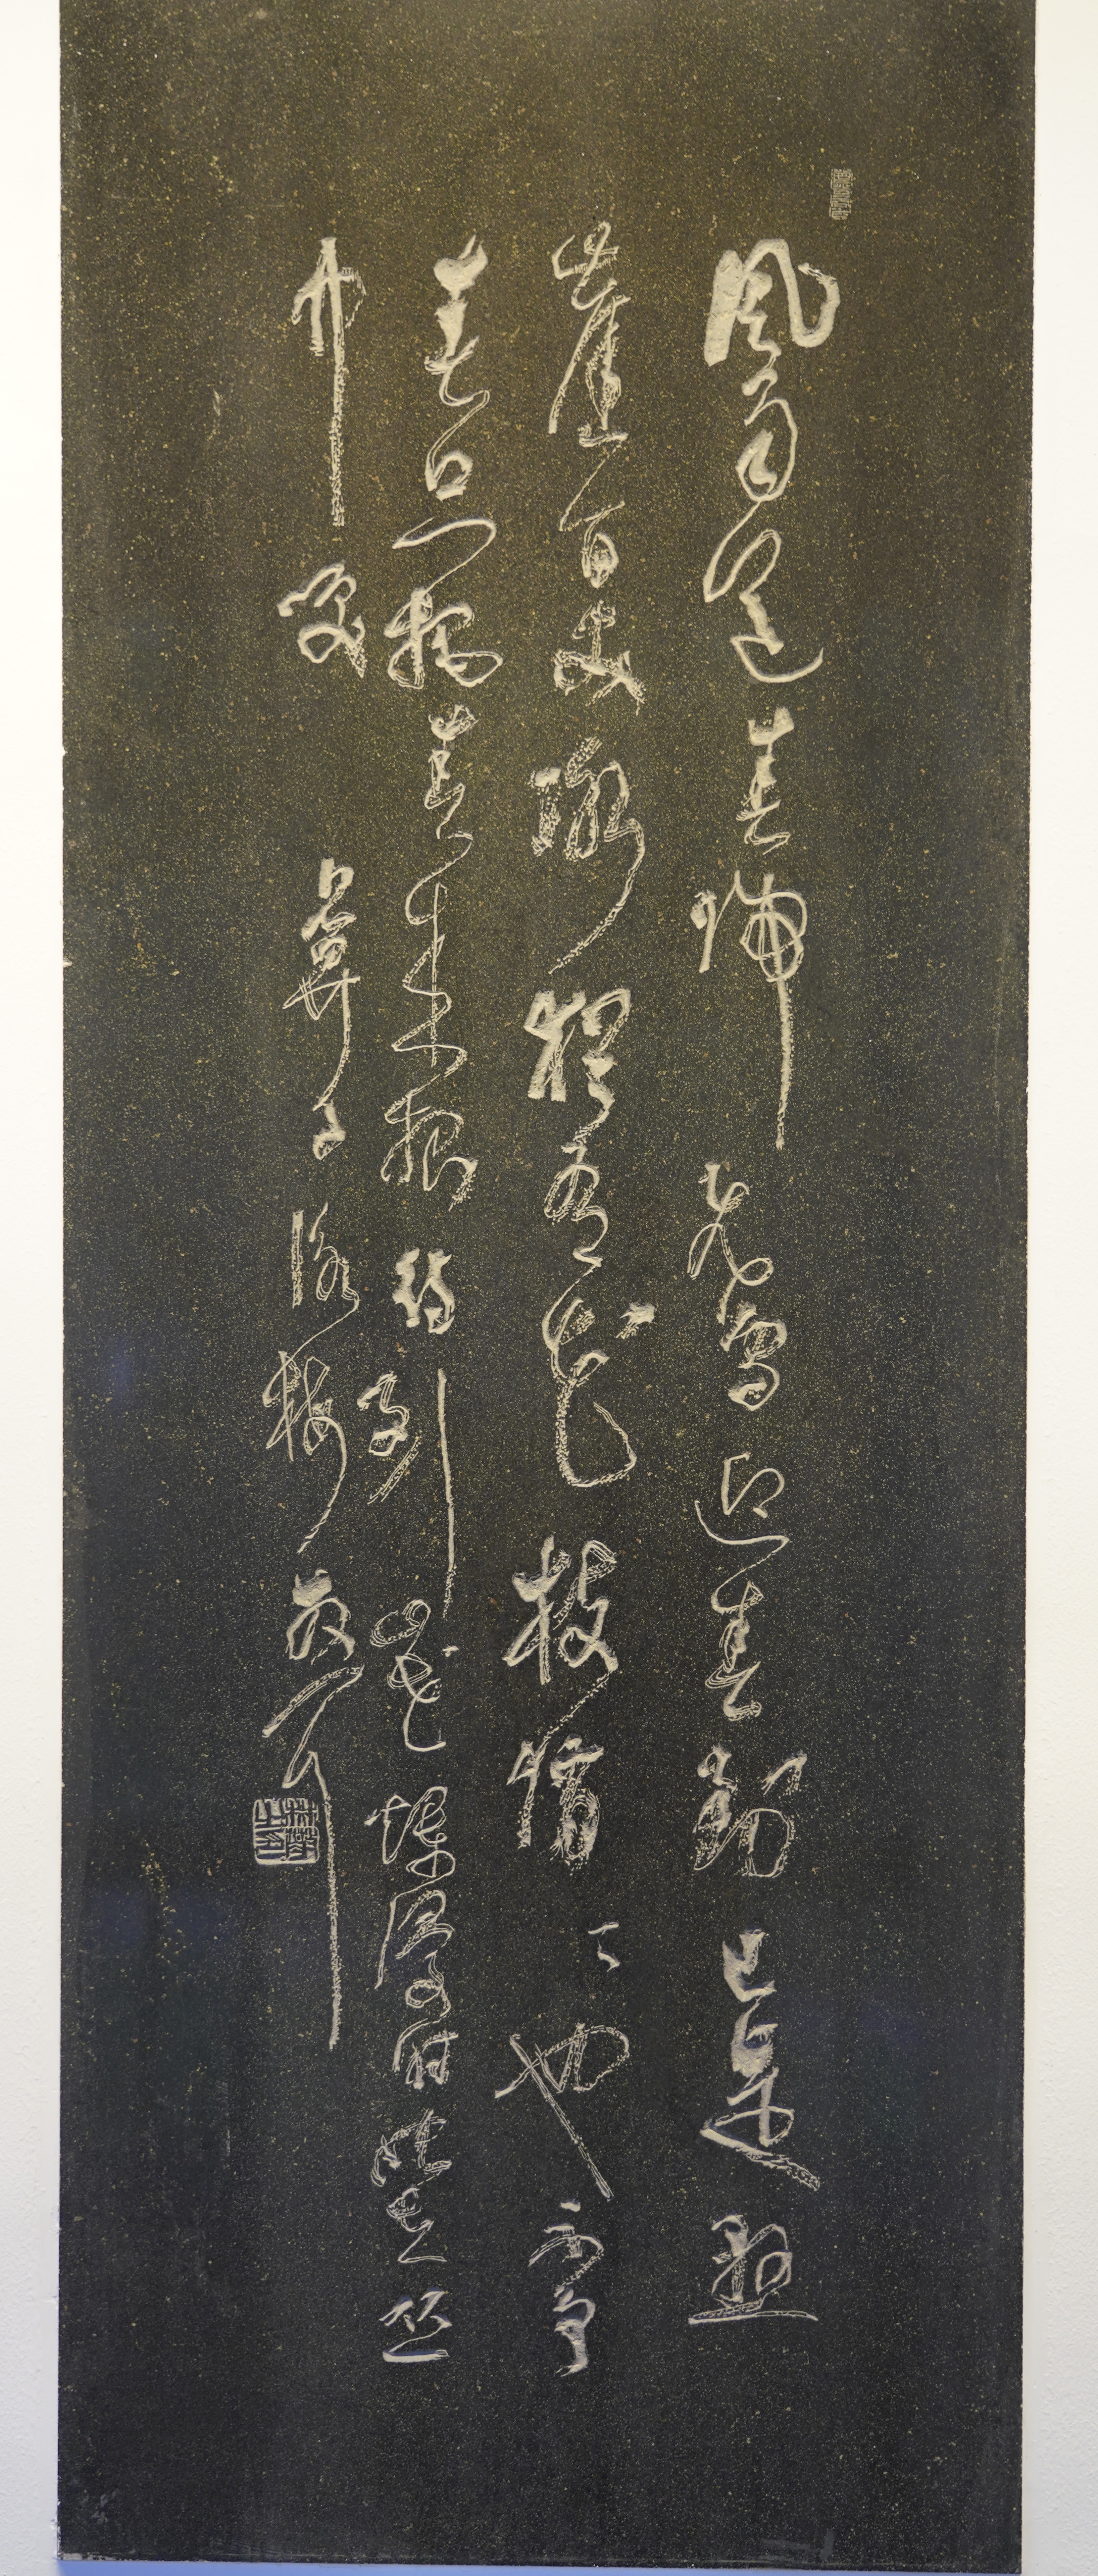 風雨送春歸飛雪迎春到已是懸
崖百丈冰猶有花枝俏〻也不爭
春只把春來報待到山花爛漫時她在丛
中笑 卜算子詠梅